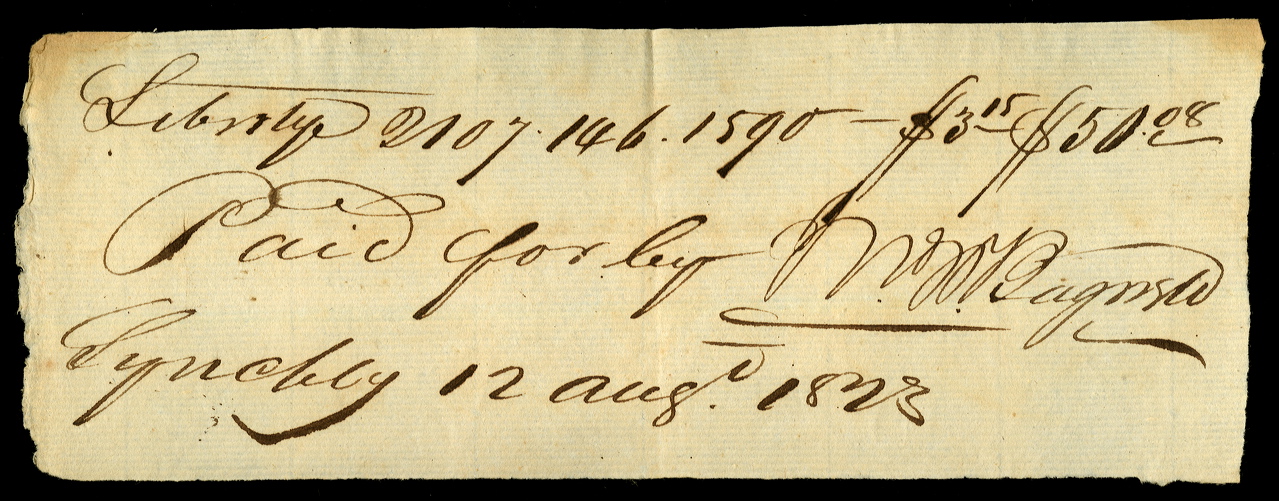 Liberty 2107. 146. 1590 — $3 15 $50.08
Paid for by Wm Bagwell
Lynchbg 12 augt. 1823